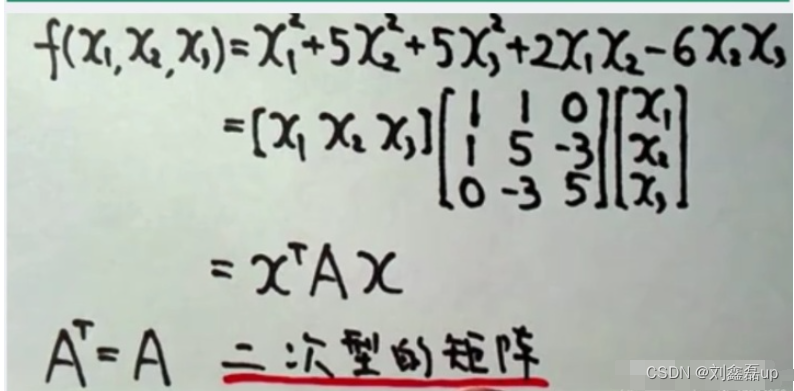 f(x₁,x₂,x₃)=x₁²+5x₂²+5x₃²+2x₁x₂-6x₂x₃
=[x₁ x₂ x₃][1 1 0][x₁]
[1 5 -3][x₂]
[0 -3 5][x₃]
=xᵀAx
Aᵀ=A 二次型的矩阵
CSDN @刘鑫磊up